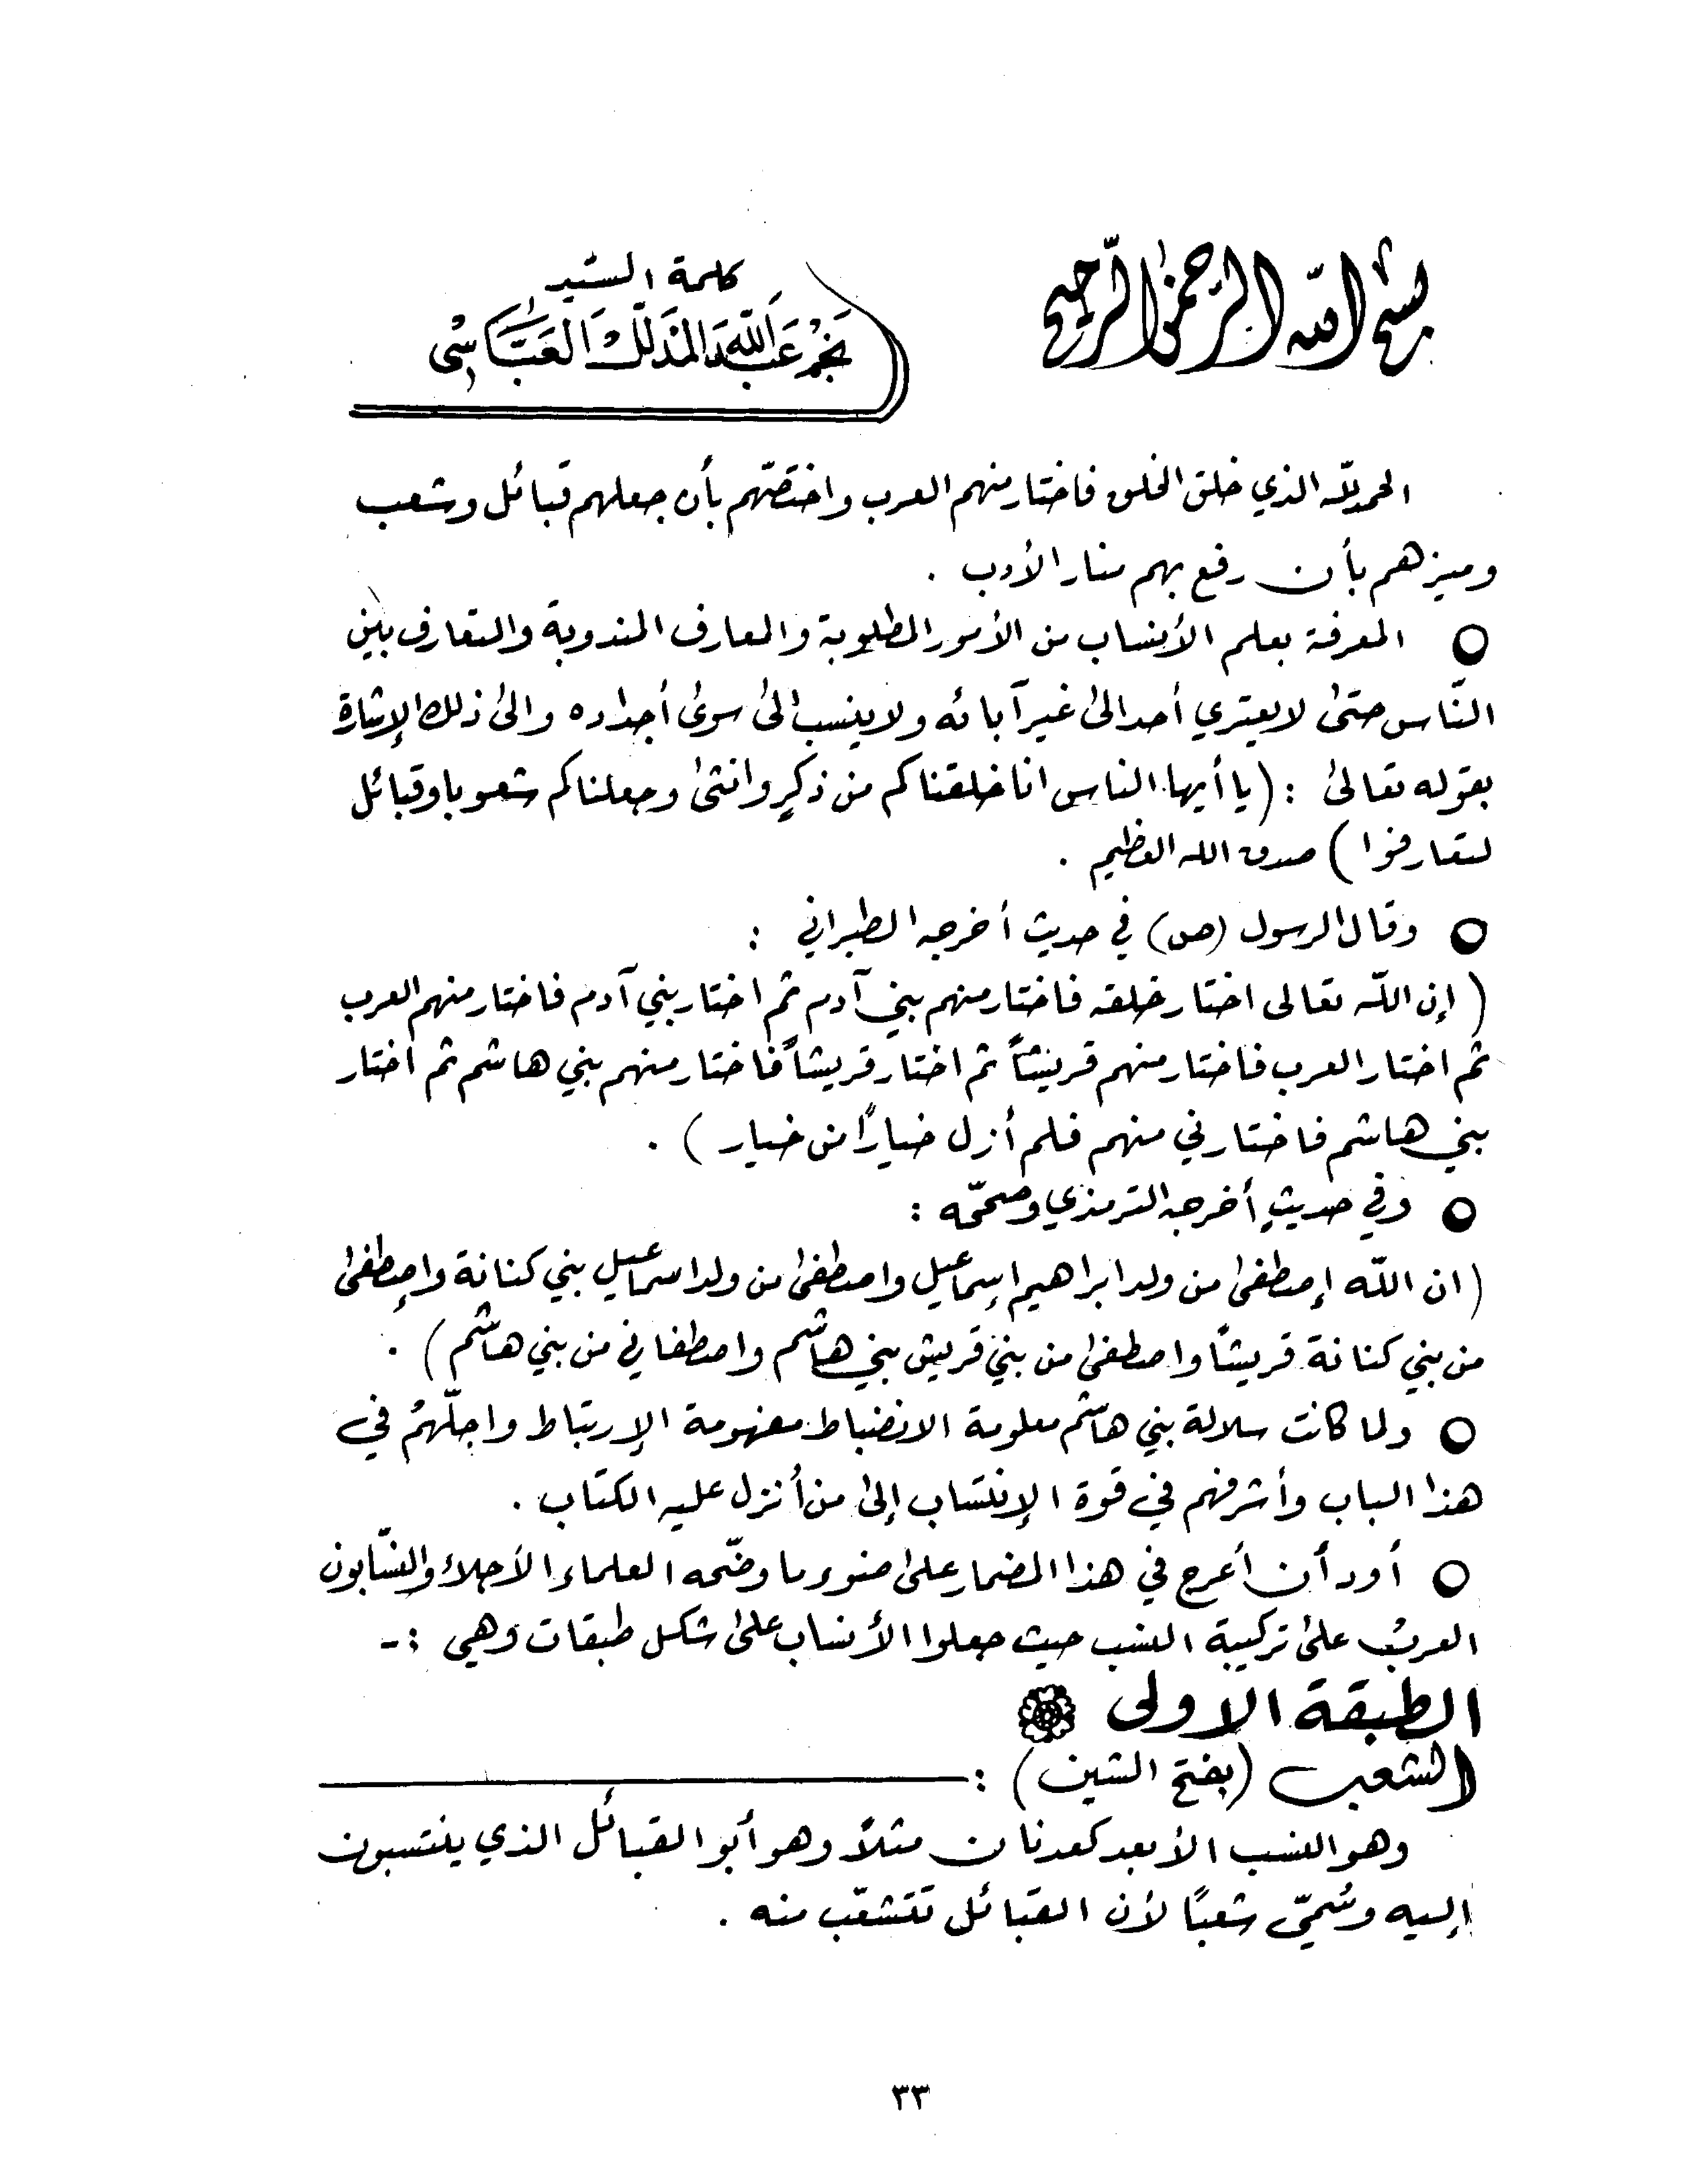 بسم الله الرحمن الرحيم
كلمة السيد
نجم عبدالله المدلل العباسي
الحمد لله الذي خلق الخلق فاختار منهم العرب واختصّهم بأن جعلهم قبائل وشعب
وميزهم بأن رفع بهم منار الأدب .
○ المعرفة بعلم الأنساب من الأمور المطلوبة والمعارف المندوبة والتعارف بين
النّاس حتى لا يعتري أحد الى غير آبائه ولا ينسب الى سوى أجداده والى ذلك الإشارة
بقوله تعالى : (يا أيها الناس انا خلقناكم من ذكرٍ وانثى وجعلناكم شعوبا وقبائل
لتعارفوا) صدق الله العظيم .
○ وقال الرسول (ص) في حديث أخرجه الطبراني :
( إن اللّه تعالى اختار خلقه فاختار منهم بني آدم ثم اختار بني آدم فاختار منهم العرب
ثم اختار العرب فاختار منهم قريشاً ثم اختار قريشاً فاختار منهم بني هاشم ثم اختار
بني هاشم فاختارني منهم فلم أزل خياراً من خيار ) .
○ وفي حديثٍ أخرجه الترمذي وصححّه :
(ان اللّه إصطفى من ولد ابراهيم إسماعيل واصطفى من ولد اسماعيل بني كنانة وإصطفى
من بني كنانة قريشاً واصطفى من بني قريش بني هاشم واصطفاني من بني هاشم ) .
○ ولما كانت سلالة بني هاشم معلومة الانضباط مفهومة الإرتباط واجلّهمُ في
هذا الباب وأشرفهم في قوة الإنتساب إلى من أُنزل عليه الكتاب .
○ أود أن أعرج في هذا المضمار على ضوء ما وضّحه العلماء الأجلاء والنسّابون
العرب على تركيبة النسب حيث جعلوا الأنساب على شكل طبقات وهي :-
الطبقة الاولى
الشعب (بفتح الشين) :
وهو النسب الأبعد كعدنان مثلاً وهو أبو القبائل الذي ينتسبون
إليه وسُميّ شعباً لأن القبائل تتشعّب منه .
٣٣